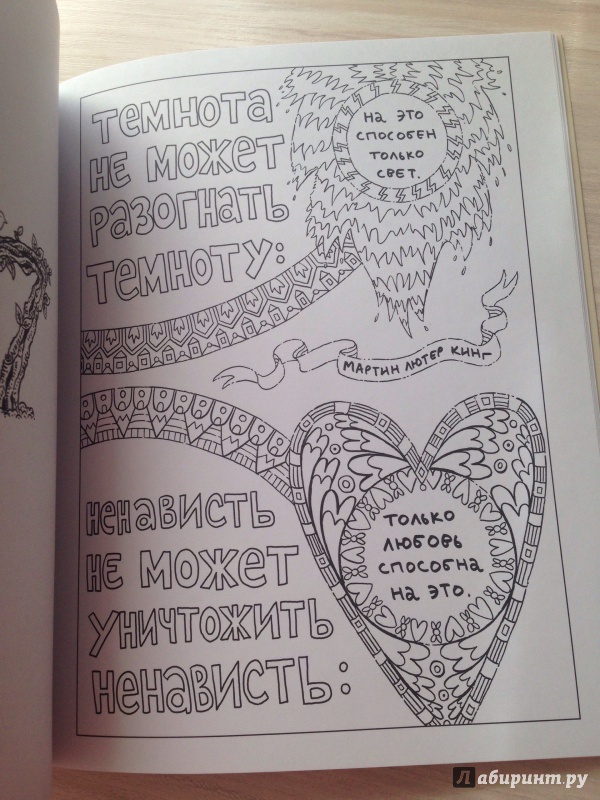 ТЕМНОТА
НЕ МОЖЕТ
РАЗОГНАТЬ
ТЕМНОТУ:
НА ЭТО
СПОСОБЕН
ТОЛЬКО
СВЕТ.
МАРТИН ЛЮТЕР КИНГ
НЕНАВИСТЬ
НЕ МОЖЕТ
УНИЧТОЖИТЬ
НЕНАВИСТЬ:
ТОЛЬКО
ЛЮБОВЬ
СПОСОБНА
НА ЭТО.
Лабиринт.ру